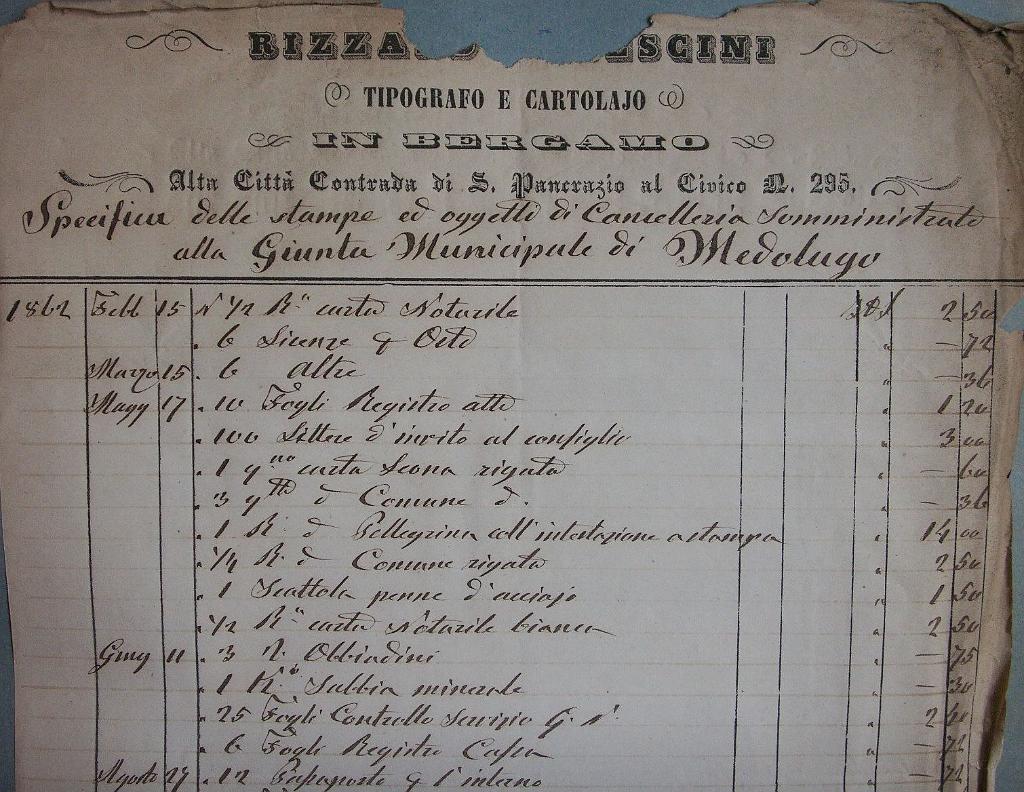 TIPOGRAFO E CARTOLAJO
IN BERGAMO
Alta Città Contrada di S. Pancrazio al Civico N. 295.
Specifica delle stampe ed oggetti di Cancelleria somministrate
alla Giunta Municipale di Medolago
1862 Febb 15 N 1/2 Rª carta Notarile 2 50
" 6 Licenze 72
Marzo 15 " 6 Altre " — 36
Magg 17 " 10 Fogli Registro atti " 1 20
" 100 Lettere d'invito al consiglio " 3 00
" 1 qno carta Leona rigata " — 60
" 3 qtti d Comune d. " — 36
" 1 R d Pellegrina coll'intestazione a stampa " 14 00
" 1/4 R d Comune rigata " 2 50
" 1 Scattola penne d'acciajo " 1 50
" 1/2 Rª carta Notarile bianca " 2 50
Giug 11 " 3 Obbiadini — 75
" 1 Sabbia minerale " — 30
" 25 Fogli Controllo Servizio G. N. " 2 40
" 6 Fogli Registro Cassa " — 72
Agosto 27 " 12 — 72